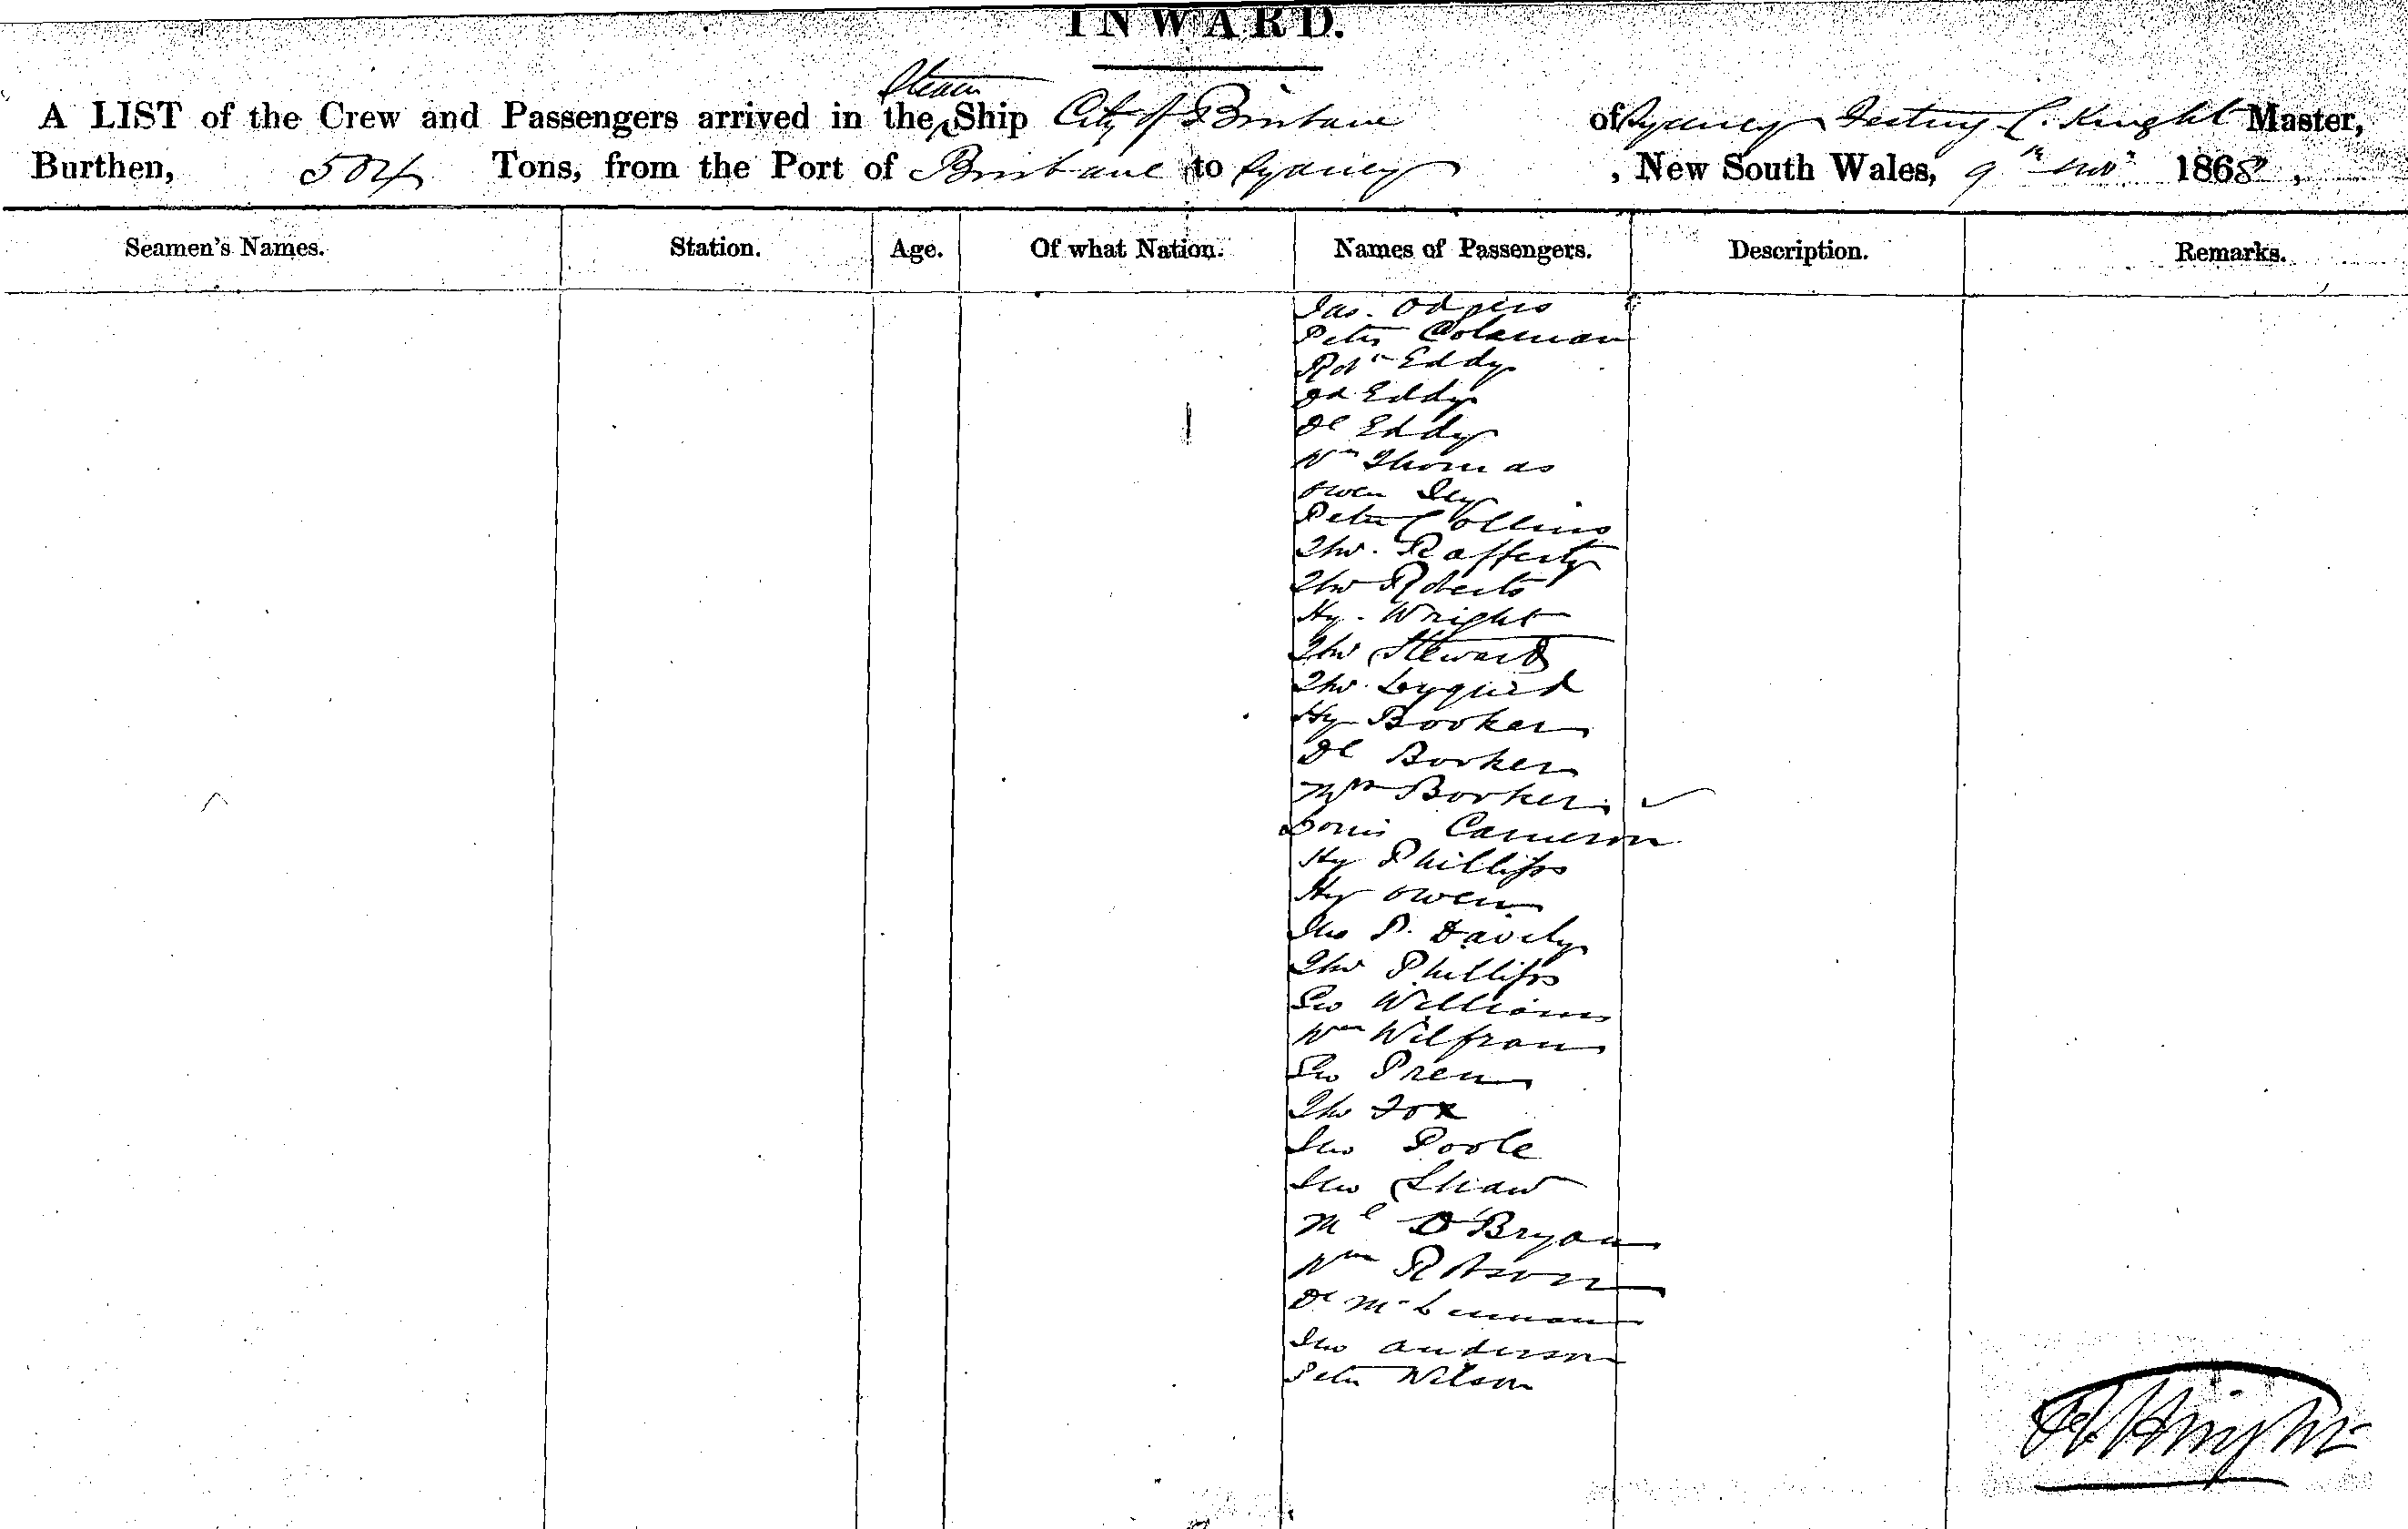 INWARD.
A LIST of the Crew and Passengers arrived in the Steam Ship City of Brisbane of Sydney C. Knight Master,
Burthen, 504 Tons, from the Port of Brisbane to Sydney, New South Wales, 9th Novr 1868,
Seamen's Names. Station. Age. Of what Nation. Names of Passengers. Description. Remarks.
Jas. Odgers
Peter Coleman
Rd Eddy
Eddy
Dl Eddy
Wm Thomas
Owen
Peter Collins
Thos. Rafferty
Thos Roberts
Hy. Wright
Thos Steward
Thos.
Hy Booker
Dl Booker
Booker
Cameron
Hy Phillips
Hy Owen
Jno P.
Thos Phillips
Geo Williams
Wm
Geo
Thos Fox
Jno Poole
Jno Shaw
Ml O'Bryan
Wm
Dl McLennan
Jno Anderson
Peter Wilson
Knight